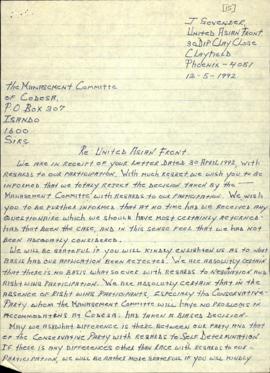 [15]
J GOVENDER,
UNITED ASIAN FRONT
30 DIP CLAY CLOSE
CLAYFIELD
PHOENIX - 4051
12-5-1992
THE MANAGEMENT COMMITTE
OF CODESA.
P.O BOX 307
ISANDO
1600
SIRS
RE UNITED ASIAN FRONT
WE ARE IN RECEIPT OF YOUR LETTER DATED 30 APRIL 1992, WITH
REGARDS TO OUR PARTICIPATION. WITH MUCH RESPECT WE WISH YOU TO BE
INFORMED THAT WE TOTALLY REJECT THE DECISION TAKEN BY THE
MANAGEMENT COMMITTE WITH REGARDS TO OUR PARTICIPATION. WE WISH
YOU TO BE FURTHER INFORMED THAT AT NO TIME HAS WE RECEIVED ANY
QUESTIONAIRE WHICH WE SHOULD HAVE MOST CERTAINLY RETURNED
HAD THAT BEEN THE CASE, AND IN THIS SENSE FEEL THAT WE HAD NOT
BEEN CONSIDERED.
WE WILL BE GRATEFUL IF YOU WILL KINDLY ENLIGHTEN US AS TO WHAT
BASIS HAD OUR APPLICATION BEEN REJECTED. WE ARE ABSOLUTELY CERTAIN
THAT THERE IS NO BASIS WHAT SO EVER WITH REGARDS TO NEGOTIATION AND
RIGHT WING PARTICIPATION. WE ARE ABSOLUTELY CERTAIN THAT IN THE
ABSENCE OF RIGHT WING PARTICIPANTS, ESPECIALLY THE CONSERVATIVE
PARTY WHOM THE MANAGEMENT COMMITTE WILL HAVE NO PROBLEMS IN
ACCOMMODATING AT CODESA. HAS TAKEN A BIASED DECISION.
MAY WE ASK WHAT DIFFERENCE IS THERE BETWEEN OUR PARTY AND THAT
OF THE CONSERVATIVE PARTY WITH REGARDS TO SELF DETERMINATION
IF THERE IS ANY DIFFERENCES OTHER THAN RACE WITH REGARDS TO OUR
PARTICIPATION, WE WILL BE RATHER MORE GRATEFUL IF YOU WILL KINDLY